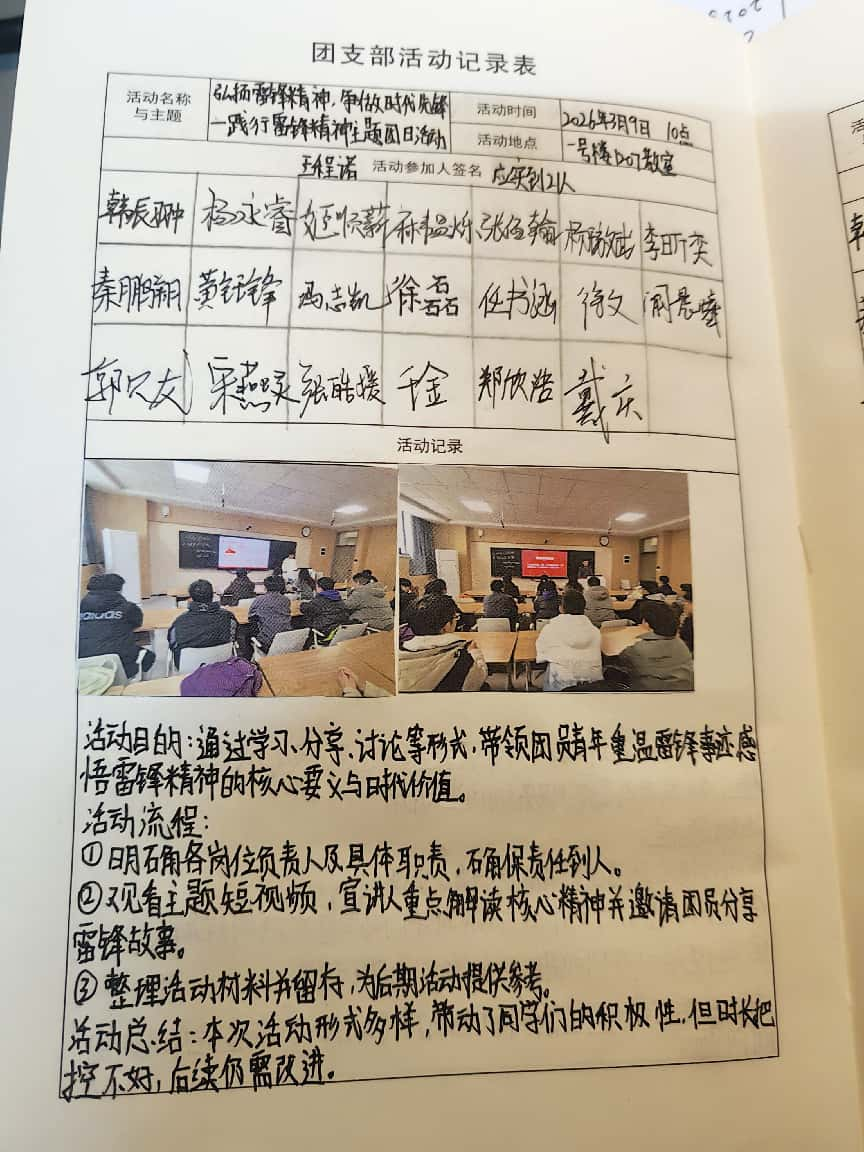 团支部活动记录表
活动名称与主题
弘扬雷锋精神,争做时代先锋
—践行雷锋精神主题团日活动
活动时间
2026年3月9日 10点
活动地点
一号楼D07教室
王程诺 活动参加人签名 应实到21人
韩辰翀 杨永睿 张伍翰 李昕奕
秦鹏翔 黄钰锋 冯志凯 徐磊磊 任书涵 徐文
郭只友 宋燕灵 张皓援 千金 郑欣浩 戴庆
活动记录
adidas
活动目的:通过学习、分享、讨论等形式,带领团员青年重温雷锋事迹感
悟雷锋精神的核心要义与时代价值。
活动流程:
①明确各岗位负责人及具体职责,确保责任到人。
②观看主题短视频,宣讲人重点解读核心精神并邀请团员分享
雷锋故事。
③整理活动材料并留存,为后期活动提供参考。
活动总结:本次活动形式多样,带动了同学们的积极性,但时长把
控不好,后续仍需改进。